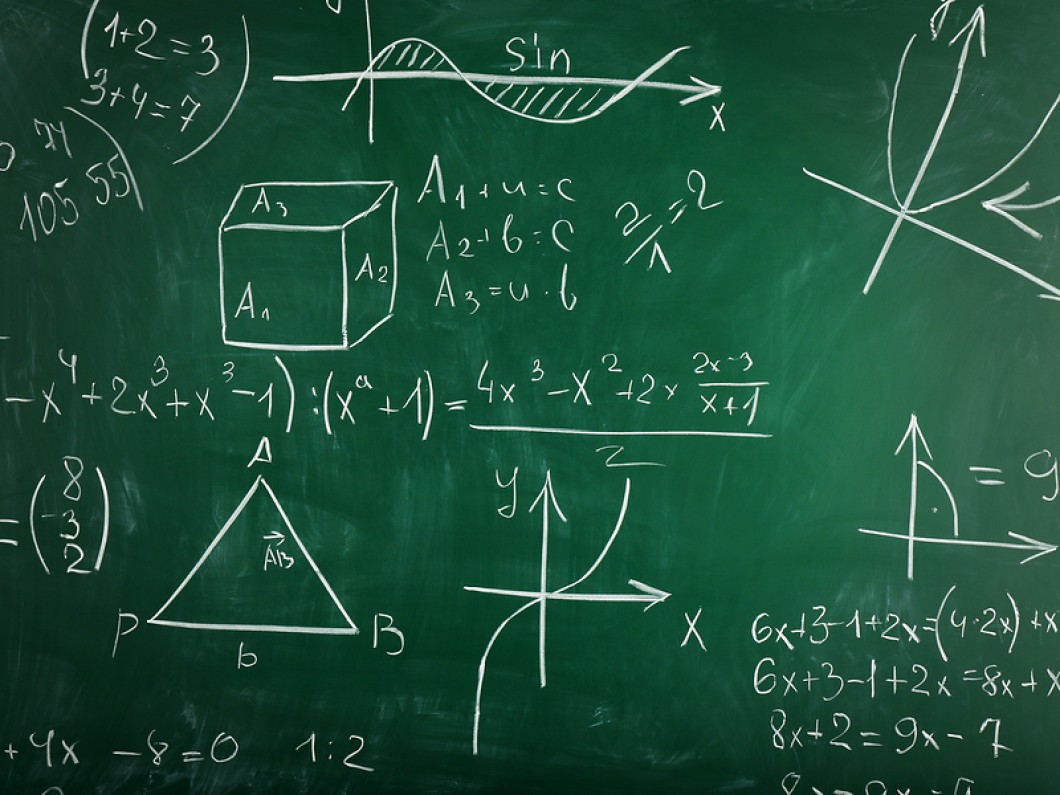 1+2=3
3+4=7
105 55
Sin
x
A₃
A₁
A₂
A₁+u=c
A₂+b=c
A₃=u·b
2/1=2
-x⁴+2x³+x³-1):(xᵃ+1)=4x³-x²+2x (2x-3)/(x+1)
=(8 -3 2)
A
AB
P
b
B
y
x
=9
6x+3-1+2x=(4·2x)+x
6x+3-1+2x=8x+x
8x+2=9x-7
+4x -8=0 1:2